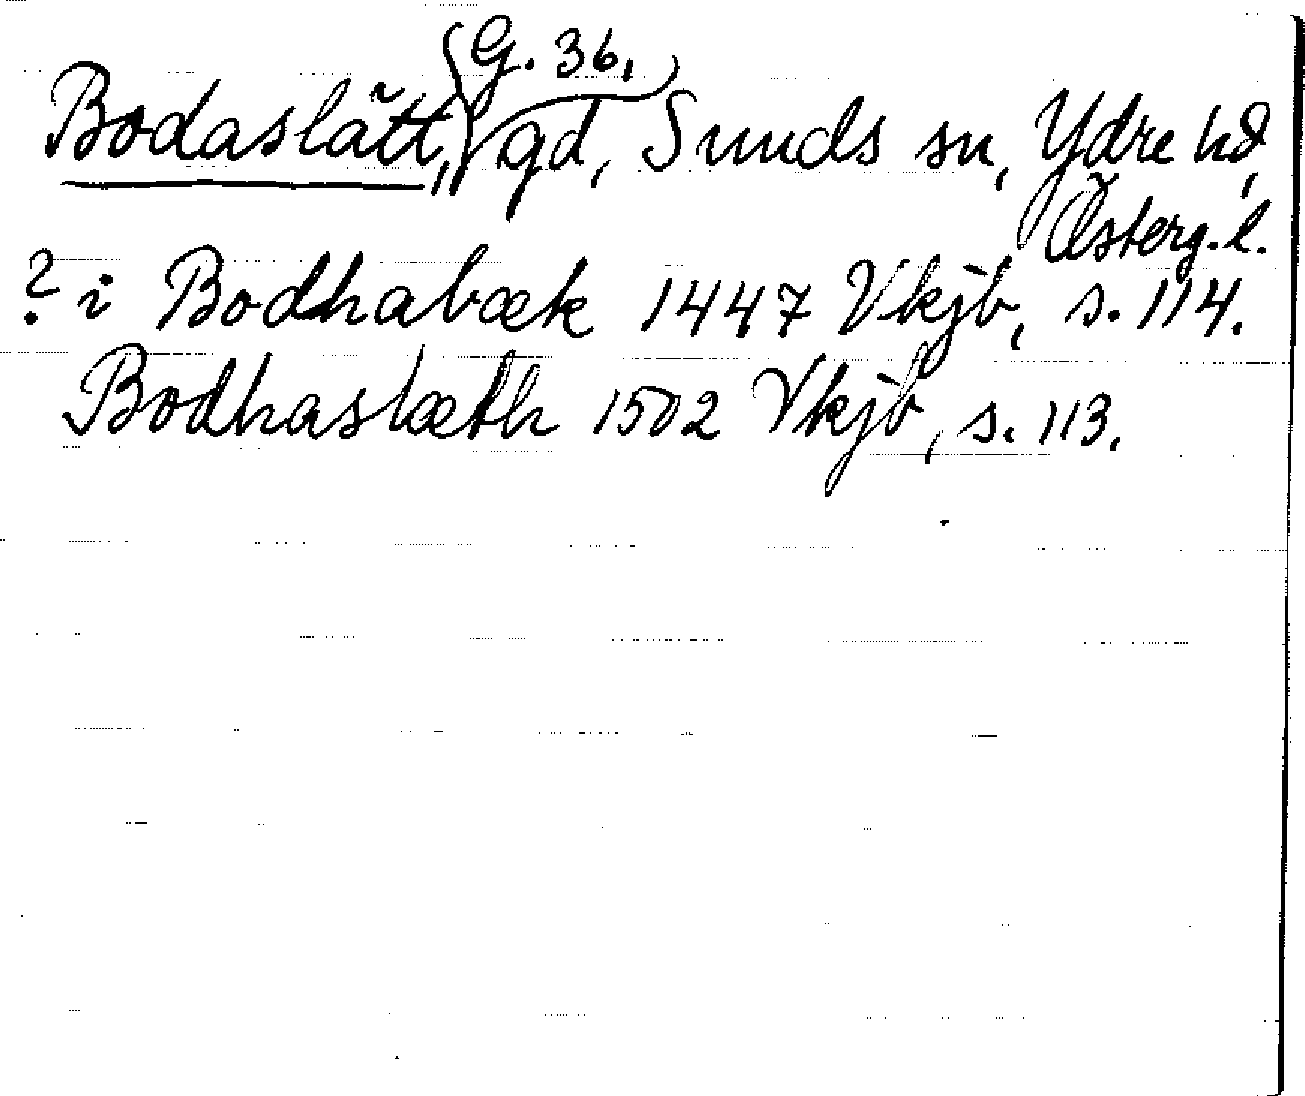 (G. 36.)
Bodaslätt, gd, Sunds sn, Ydre hd,
Österg. l.
? i Bodhabæk 1447 Vkjb, s. 114.
Bodhaslæth 1502 Vkjb, s. 113.